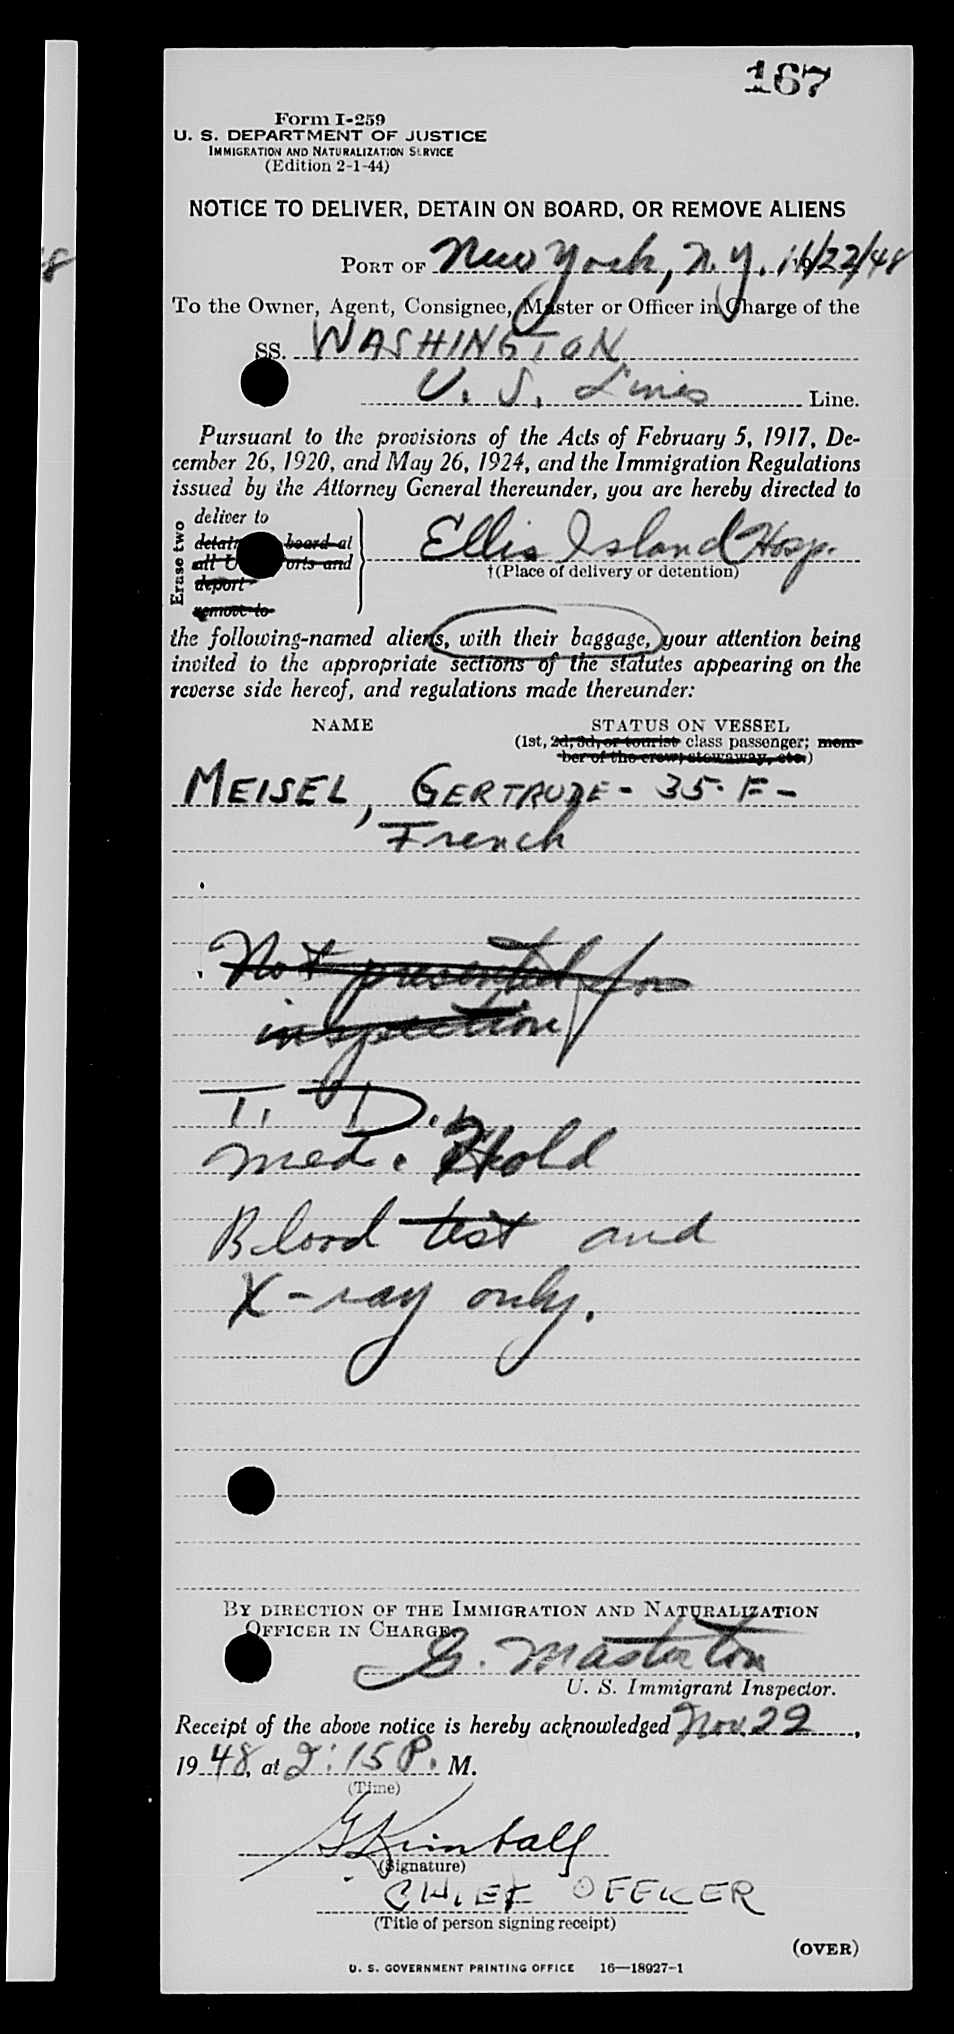 167
Form I-259
U. S. DEPARTMENT OF JUSTICE
IMMIGRATION AND NATURALIZATION SERVICE
(Edition 2-1-44)
NOTICE TO DELIVER, DETAIN ON BOARD, OR REMOVE ALIENS
8
PORT OF New York, N.Y. 11/22/48
To the Owner, Agent, Consignee, Master or Officer in Charge of the
SS. WASHINGTON
U. S. Lines Line.
Pursuant to the provisions of the Acts of February 5, 1917, De-
cember 26, 1920, and May 26, 1924, and the Immigration Regulations
issued by the Attorney General thereunder, you are hereby directed to
Erase two
deliver to
board at
all
and
deport
remove to
Ellis Island Hosp.
†(Place of delivery or detention)
the following-named aliens, with their baggage, your attention being
invited to the appropriate sections of the statutes appearing on the
reverse side hereof, and regulations made thereunder:
NAME STATUS ON VESSEL
(1st, 2d, 3d, or tourist class passenger; mem-
ber of the crew; stowaway, etc.)
MEISEL, GERTRUDE - 35 - F -
French
Not presented for
inspection
T. D.
Med. Hold
Blood test and
X-ray only.
BY DIRECTION OF THE IMMIGRATION AND NATURALIZATION
OFFICER IN CHARGE.
G. Masterton
U. S. Immigrant Inspector.
Receipt of the above notice is hereby acknowledged Nov. 22,
19 48, at 2:15 P. M.
(Time)
G Kimball
(Signature)
CHIEF OFFICER
(Title of person signing receipt)
(OVER)
U. S. GOVERNMENT PRINTING OFFICE 16—18927-1